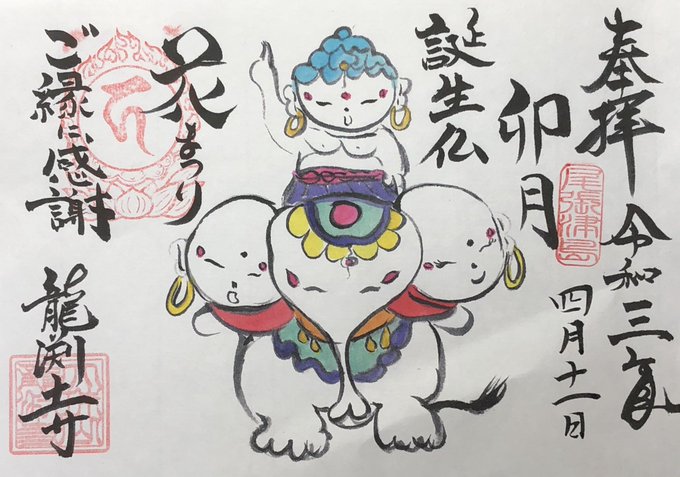 奉拝
令和三年
四月十一日
尾張津島
卯月
誕生仏
花まつり
ご縁に感謝
龍渕寺